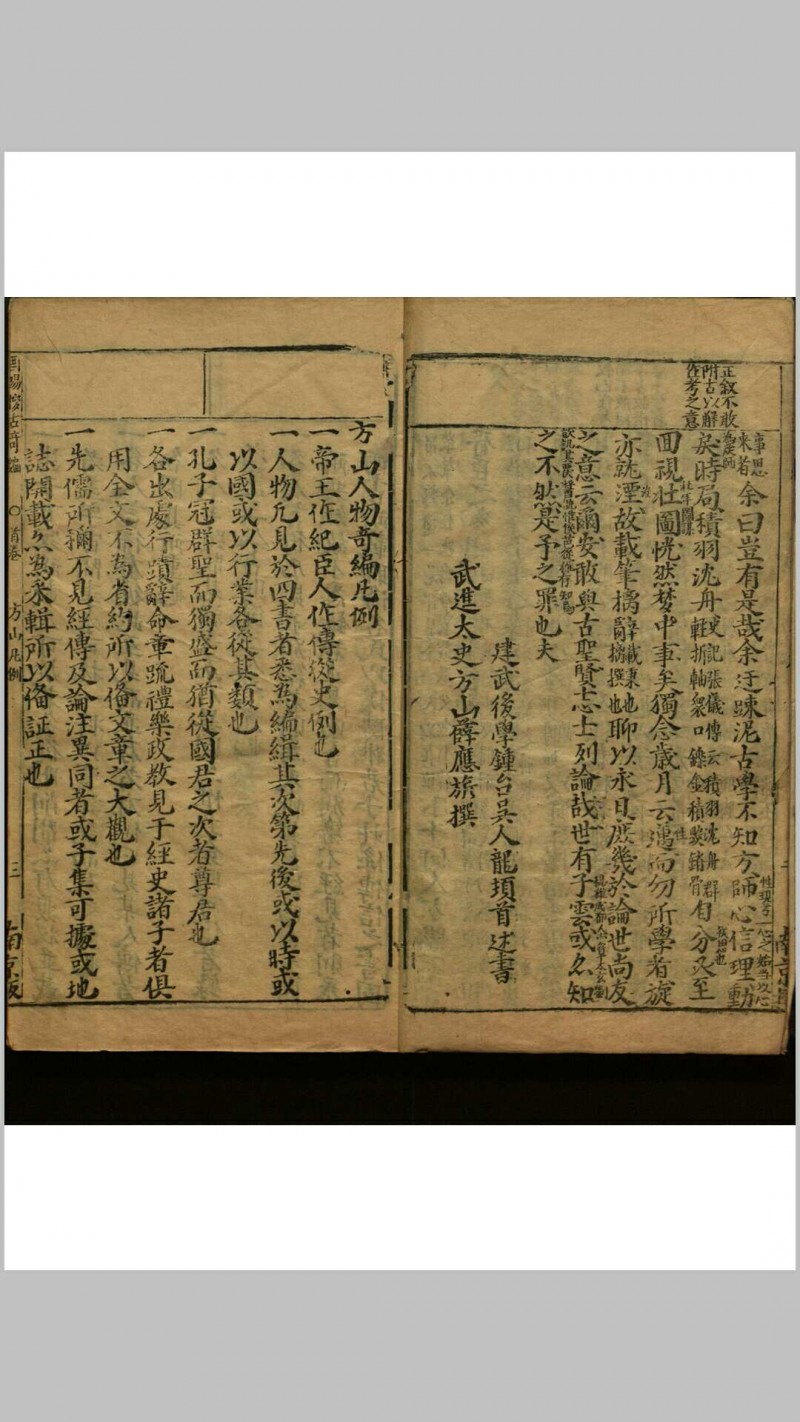 正敘不敢
附古以解
經考之意
事思
來者
余曰豈有是哉余迂踈泥古學不知方師心信理動
矣時局積羽沈舟史記張儀傳云積羽沈舟群輕折軸衆口鑠金積毀銷骨
自分及至
回視壮圖恍然梦中事矣獨念歲月云邁而勿所學者旋
亦就湮故載筆摛辭聊以永日庶幾於論世尚友
之意云爾安敢與古聖賢志士列論哉世有子雲或知
之不然是予之罪也夫
建武後學鍾台吳人龍頊首述書
武進太史方山薛應旂撰
方山人物奇編凡例
一帝王作紀臣人作傳從史例也
一人物凡見於四書者悉為編緝其次第先後或以時或
以國或以行業各從其類也
一孔子冠群聖而獨盛而猶從國君之次者尊君也
一各出處行蹟辭命章疏禮樂政教見于經史諸子者俱
用全文不為者約所以備文章之大觀也
一先儒所稱不見經傳及論注異同者或子集可據或地
誌開載亦為采輯所以備証正也
首卷
方山凡例
三
南京板